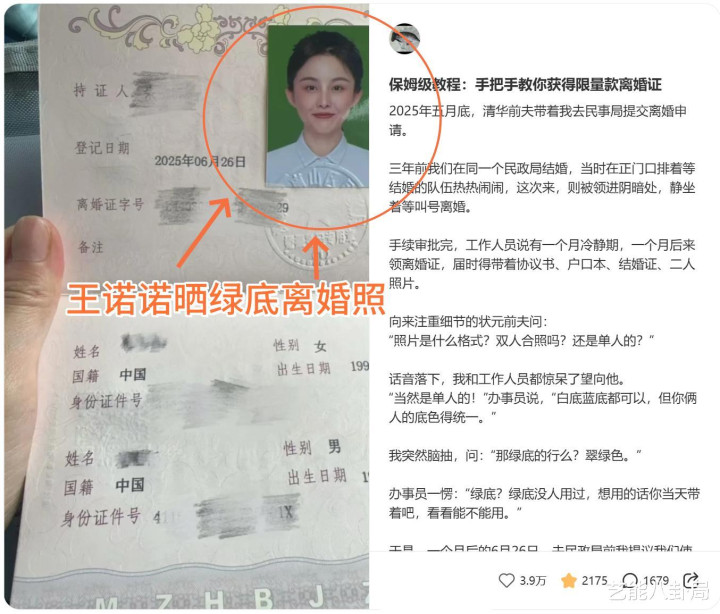 持证人
登记日期
2025年06月26日
离婚证字号
89
备注
王诺诺晒绿底离婚照
姓名
性别 女
国籍 中国
出生日期 199
身份证件号
姓名
性别 男
国籍 中国
出生日期 1
身份证件号 41
1X
M Z H B J Z
保姆级教程：手把手教你获得限量款离婚证
2025年五月底，清华前夫带着我去民事局提交离婚申
请。
三年前我们在同一个民政局结婚，当时在正门口排着等
结婚的队伍热热闹闹，这次来，则被领进阴暗处，静坐
着等叫号离婚。
手续审批完，工作人员说有一个月冷静期，一个月后来
领离婚证，届时得带着协议书、户口本、结婚证、二人
照片。
向来注重细节的状元前夫问：
“照片是什么格式？双人合照吗？还是单人的？”
话音落下，我和工作人员都惊呆了望向他。
“当然是单人的！”办事员说，“白底蓝底都可以，但你俩
人的底色得统一。”
我突然脑抽，问：“那绿底的行么？翠绿色。”
办事员一愣：“绿底？绿底没人用过，想用的话你当天带
着吧，看看能不能用。”
于是，一个月后的6月26日，去民政局前我提议我们使
3.9万
2175
1679
艺能八卦局